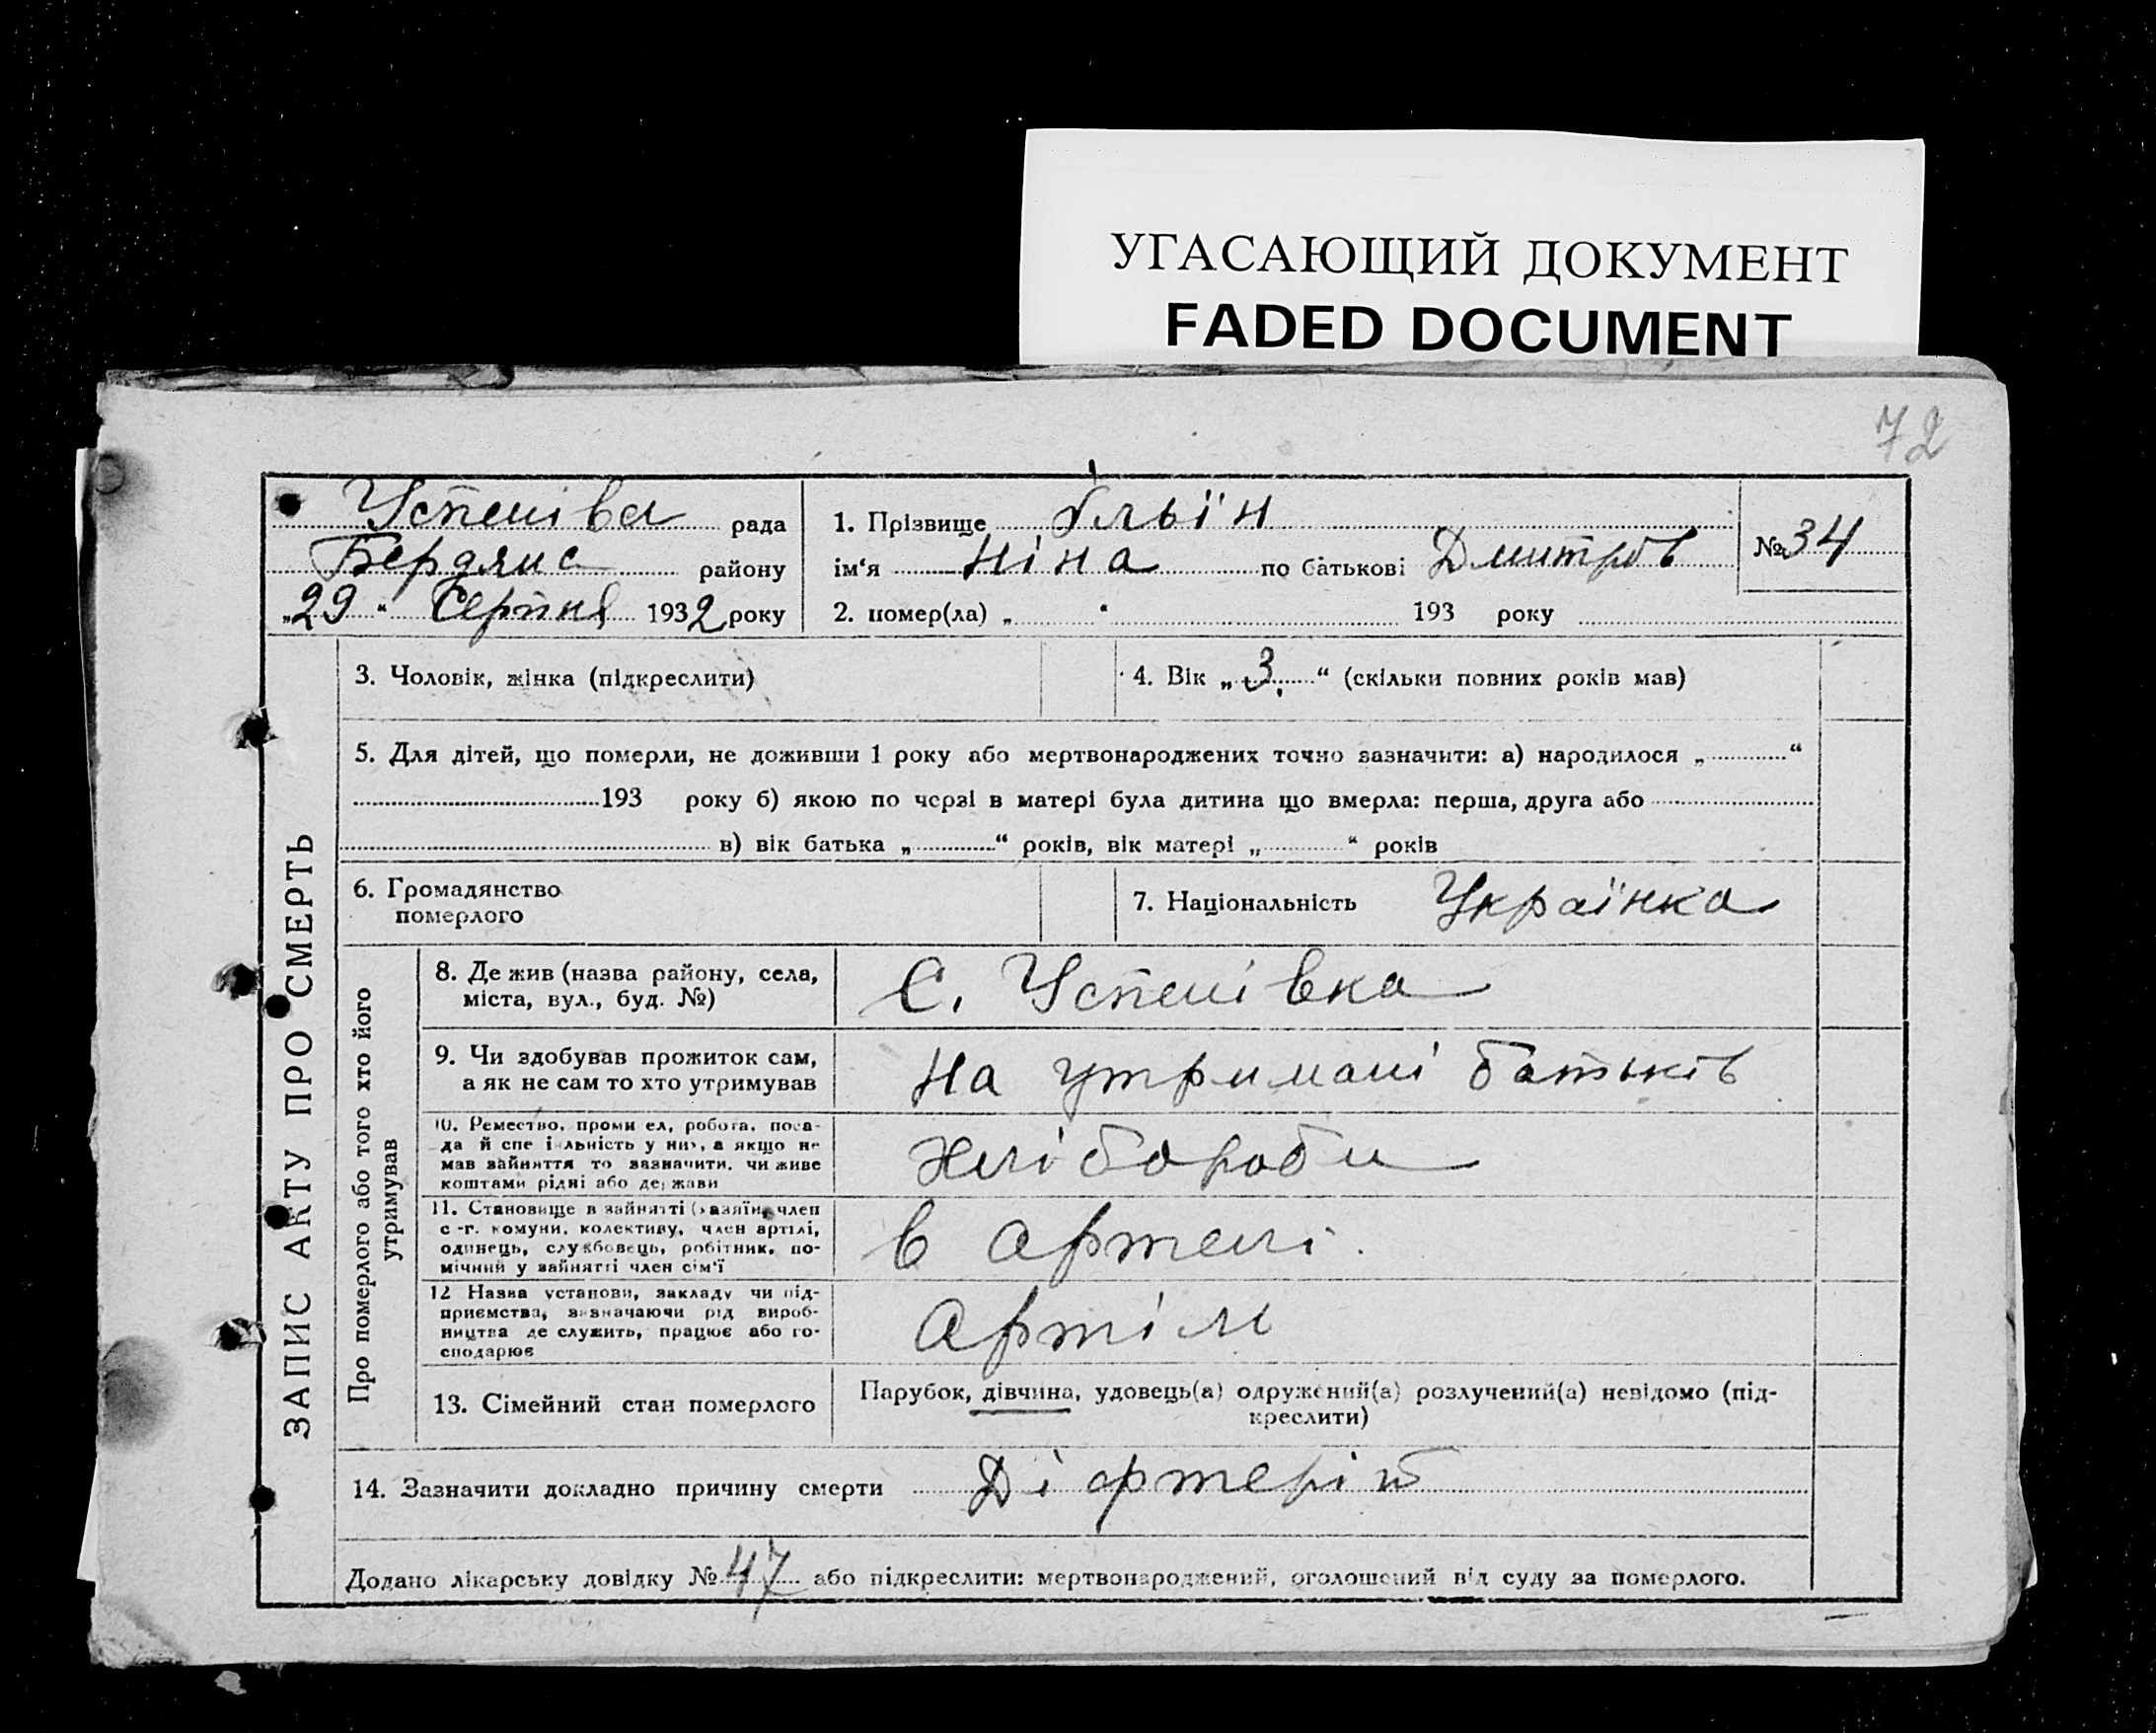 УГАСАЮЩИЙ ДОКУМЕНТ
FADED DOCUMENT
72
Успенівса рада
Бердянс району
„29“ Серпня 1932 року
1. Прізвище Ільїн
ім‘я Ніна по батькові Дмитрів
№ 34
2. помер(ла) „ “ 193 року
ЗАПИС АКТУ ПРО СМЕРТЬ
3. Чоловік, жінка (підкреслити)
4. Вік „3.“ (скільки повних років мав)
5. Для дітей, що померли, не доживши 1 року або мертвонароджених точно зазначити: а) народилося „ “
193 року б) якою по черзі в матері була дитина що вмерла: перша, друга або
в) вік батька „ “ років, вік матері „ “ років
6. Громадянство
померлого
7. Національність Українка
Про померлого або того хто його
утримував
8. Де жив (назва району, села,
міста, вул., буд. №)
С. Успенівка
9. Чи здобував прожиток сам,
а як не сам то хто утримував
На утримані батьків
10. Ремество, проми ел, робота, поса-
да й спе і льність у ни , а якщо не
мав зайняття то зазначити, чи живе
коштами рідні або держави
Хлібороби
11. Становище в зайнятті (хазяїн, член
с -г. комуни, колективу, член артілі,
одинець, службовець, робітник, по-
мічний у зайнятті член сім‘ї
в артелі.
12 Назва установи, закладу чи під-
приємства, зазначаючи рід вироб-
ництва де служить, працює або го-
сподарює
Артіль
13. Сімейний стан померлого
Парубок, дівчина, удовець(а) одружений(а) розлучений(а) невідомо (під-
креслити)
14. Зазначити докладно причину смерти Діфтерій
Додано лікарську довідку № 47 або підкреслити: мертвонароджений, оголошений від суду за померлого.